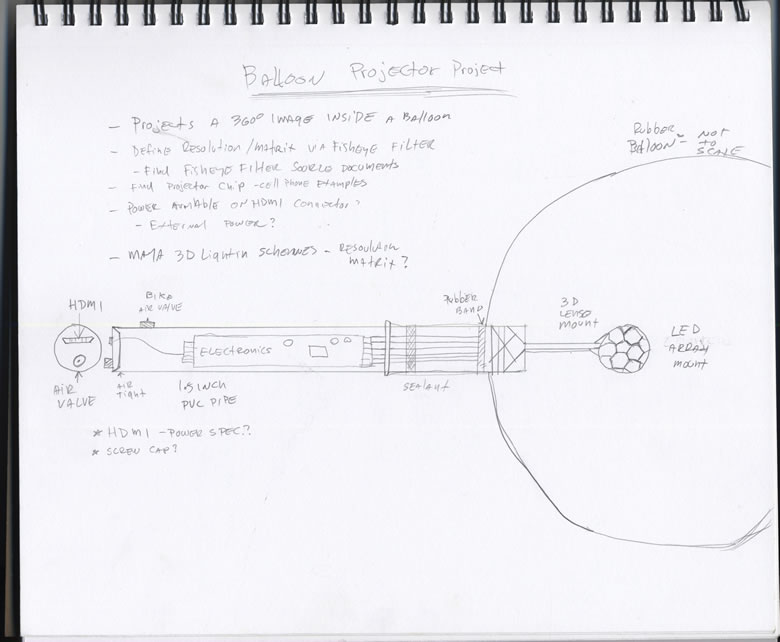 Balloon Projector Project
- Projects A 360° IMAGE INSIDE A Balloon
- Define Resolution/matrix via Fisheye Filter
- Find Fisheye Filter Source Documents
- Find Projector Chip - cell phone examples
- Power Available on HDMI Connector?
- External Power?
- MAYA 3D Lightin schemes - Resolution
matrix?
Rubber
Balloon - NOT
TO
SCALE
HDMI
Bike
AIR VALVE
Rubber
BAND
3D
Lense
mount
LED
ARRAY
mount
ELECTRONICS
AIR
VALVE
AIR
Tight
1.5 INCH
PVC PIPE
Sealant
* HDMI - Power Spec??
* SCREW CAP?